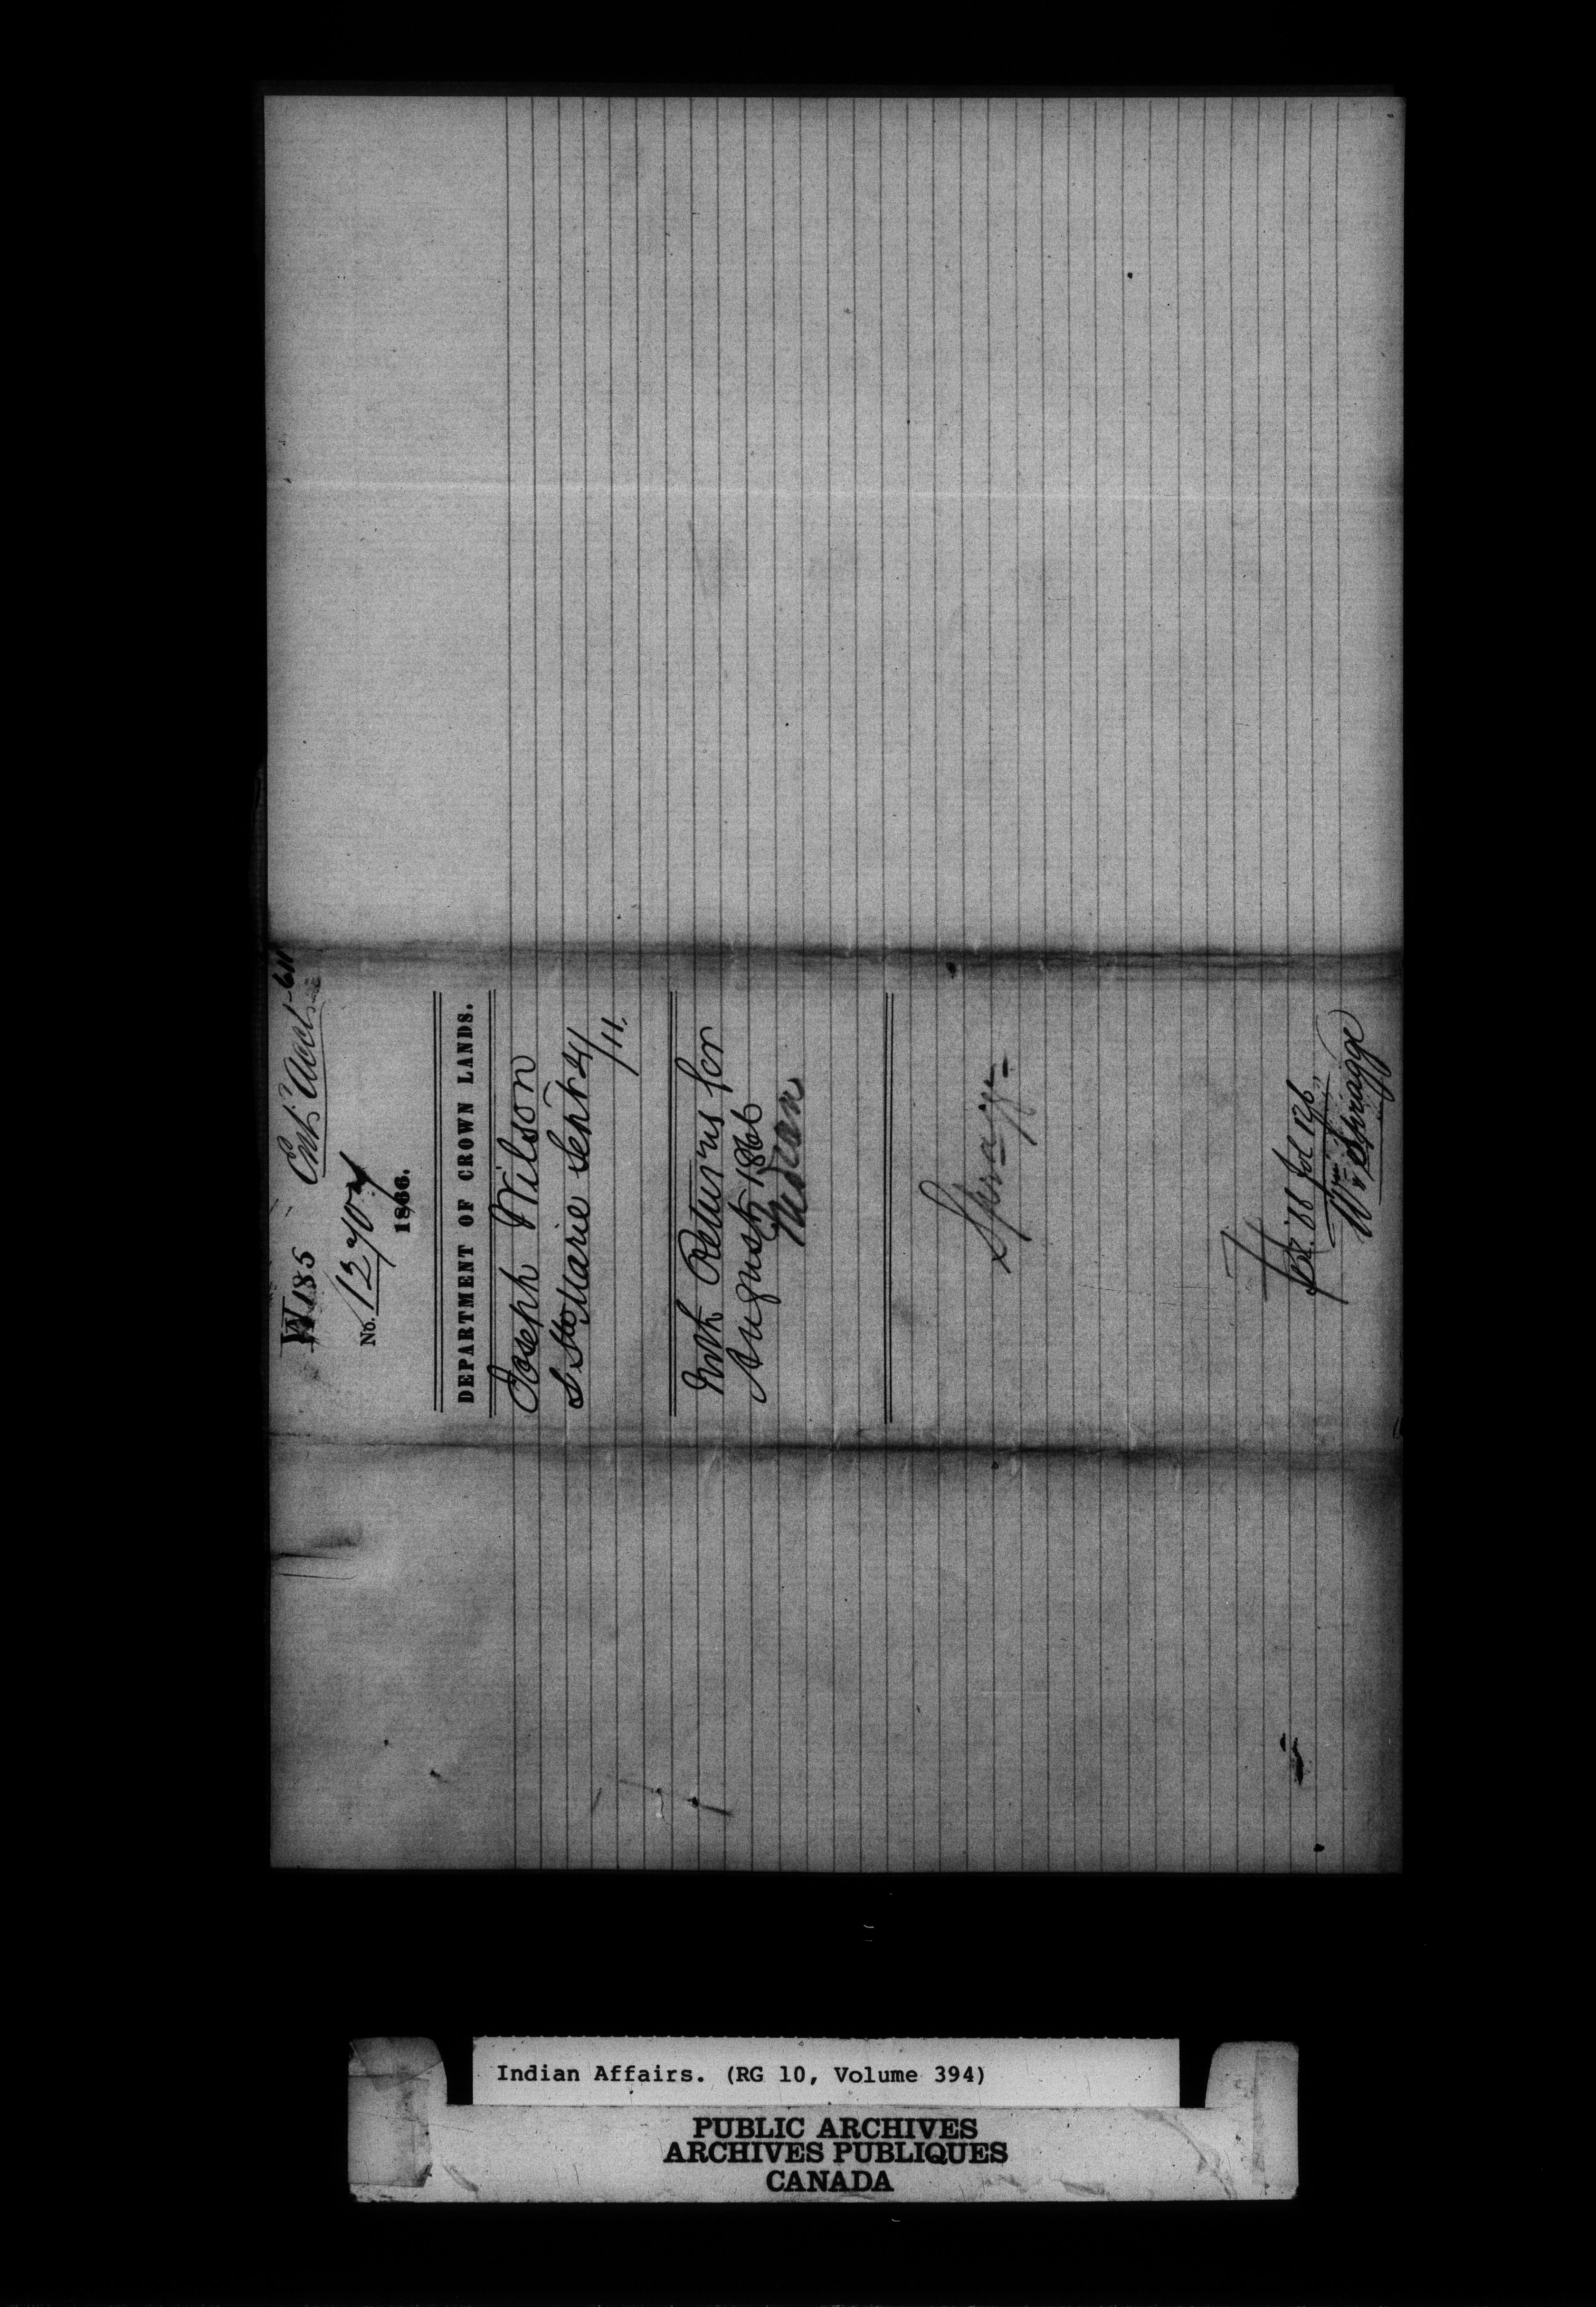 W185 Ent. Acct.
No. 12707
1866.
DEPARTMENT OF CROWN LANDS.
Joseph Wilson
S. Ste Marie Sept 4/
/11.
With Returns for
August 1866
Indian
Spragge
fol 126
Wm Spragge
Indian Affairs. (RG 10, Volume 394)
PUBLIC ARCHIVES
ARCHIVES PUBLIQUES
CANADA